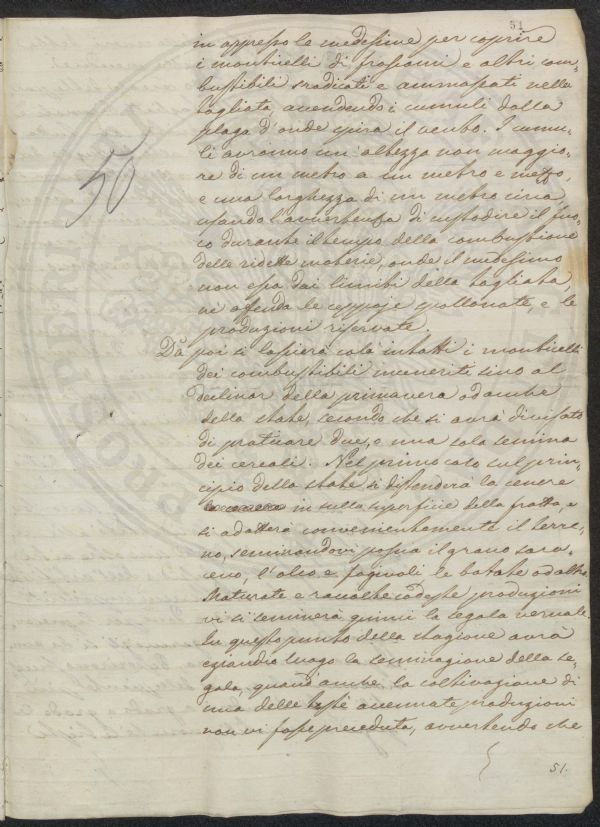 51
in appresso le medesime per coprire
i monticelli di frascami e altri com-
bustibili sradicati e ammassati nella
tagliata accendendo i cumuli dalla
plaga d'onde spira il vento. I cumu-
li avranno un'altezza non maggio-
re di un metro a un metro e mezzo,
e una larghezza di un metro circa,
usando l'avvertenza di custodire il fuo-
co durante il tempo della combustione
delle ridette materie, onde il medesimo
non esca dai limiti della tagliata,
nè offenda le ceppaje pollonate, e le
produzioni riservate.
Da poi si lascierà colà intatti i monticelli
dei combustibili inceneriti sino al
declinar della primavera od anche
della state, secondo che si avrà divisato
di pratuare due, o una sola semina
dei cereali. Nel primo caso sul prin-
cipio della state si distenderà la cenere
in sulla superficie della fratta, e
si adatterà convenientemente il terre-
no, seminandovi poscia il grano sara-
ceno, l'orzo e fagiuoli le patate od altro.
Maturate e raccolte codeste produzioni
vi si seminerà quinci la segala vernale.
In questo punto della stagione avrà
eziandio luogo la seminagione della se-
gala, quand'anche la coltivazione di
una delle testè accennate produzioni
non vi fosse preceduta, avvertendo che
50
51.
PROSPERI